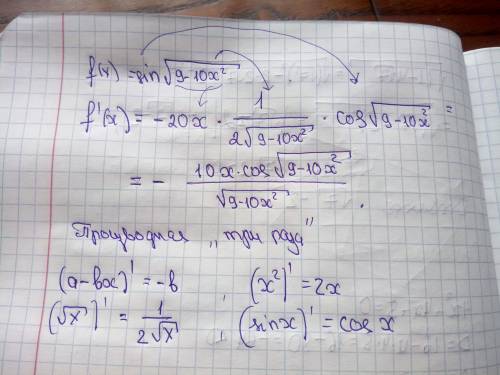 f(x) = sin√(9-10x²)
f'(x) = -20x · 1/(2√(9-10x²)) · cos√(9-10x²) =
= - (10x·cos√(9-10x²))/√(9-10x²) .
Производная „три раза"
(a-bx)' = -b , (x²)' = 2x
(√x)' = 1/(2√x) , (sinx)' = cos x